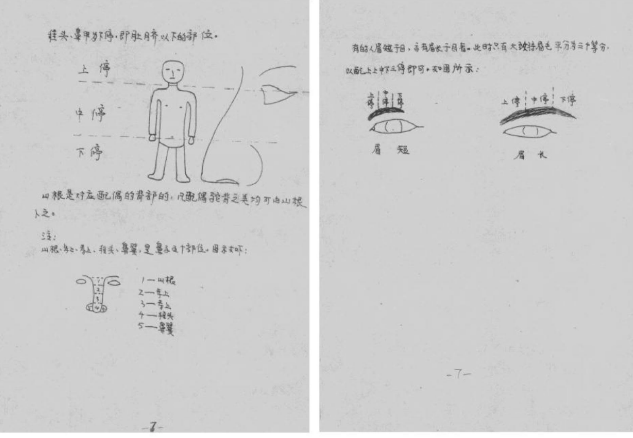 准头、鼻甲为下停，即肚脐以下的部位。
上停
中停
下停
山根是对应配偶的背部的，凡配偶背之美均可由山根
入之。
注：
山根、年上、寿上、准头、鼻翼，是鼻子五个部位。图示如下：
1—山根
2—年上
3—寿上
4—准头
5—鼻翼
-7-
有的人眉短于目，亦有眉长于目者。此时只有大致将眉毛平分为三个等分，
以配上上中下三停即可。如图所示：
上停 中停 下停
上停 中停 下停
眉 短
眉 长
-7-